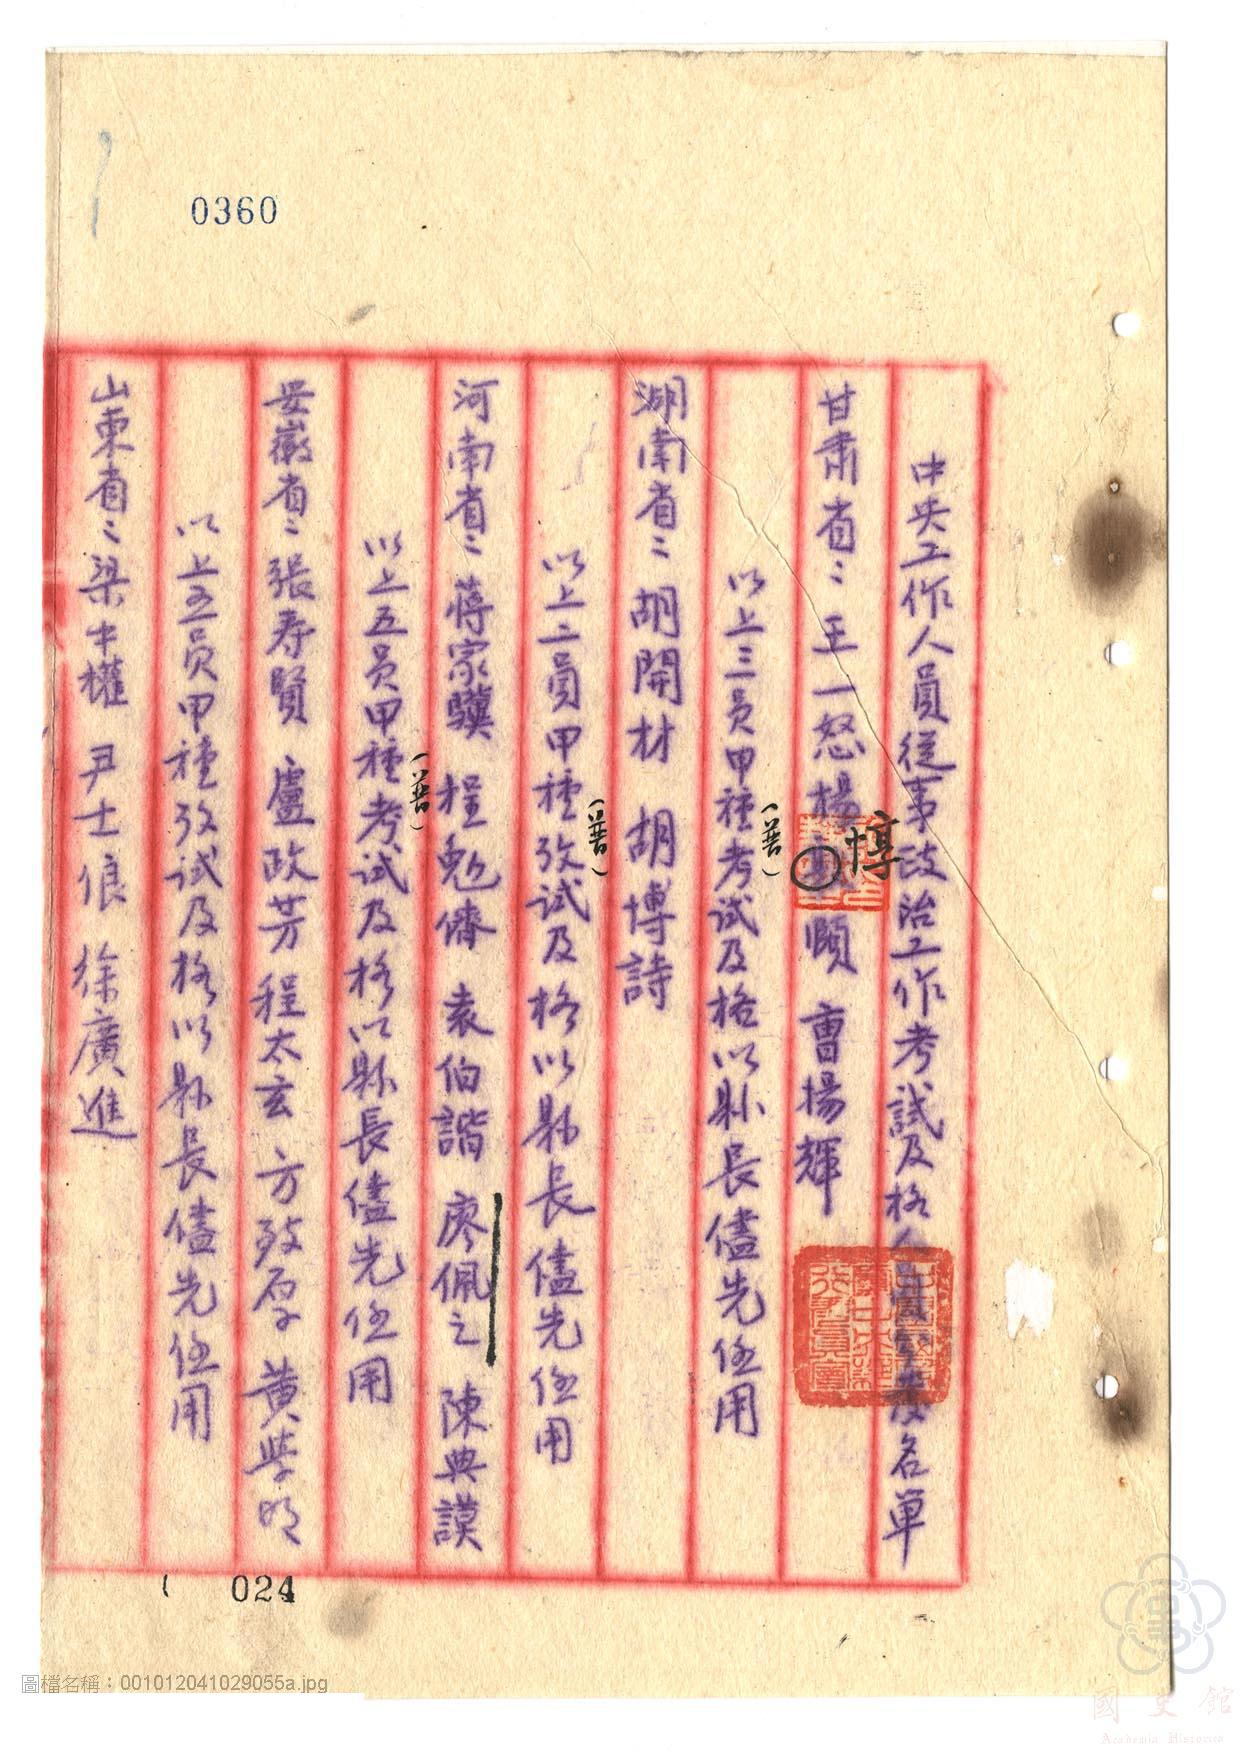 0360
中央工作人員從事政治工作考試及格人員名單
甘肅省：王一怒 楊惇頤 曹揚輝
以上三員甲種考試及格以縣長儘先任用
(普)
湖南省：胡開材 胡博詩
以上二員甲種攷試及格以縣長儘先任用
(普)
河南省：蔣家驥 程勉儕 袁伯諧 廖佩之 陳典謨
以上五員甲種考試及格以縣長儘先任用
(普)
安徽省：張壽賢 盧政芳 程太玄 方孶 黃學明
以上五員甲種攷試及格以縣長儘先任用
山東省：梁中權 尹士俍 徐廣進
024
圖檔名稱：001012041029055a.jpg
國史館
Academia Historica